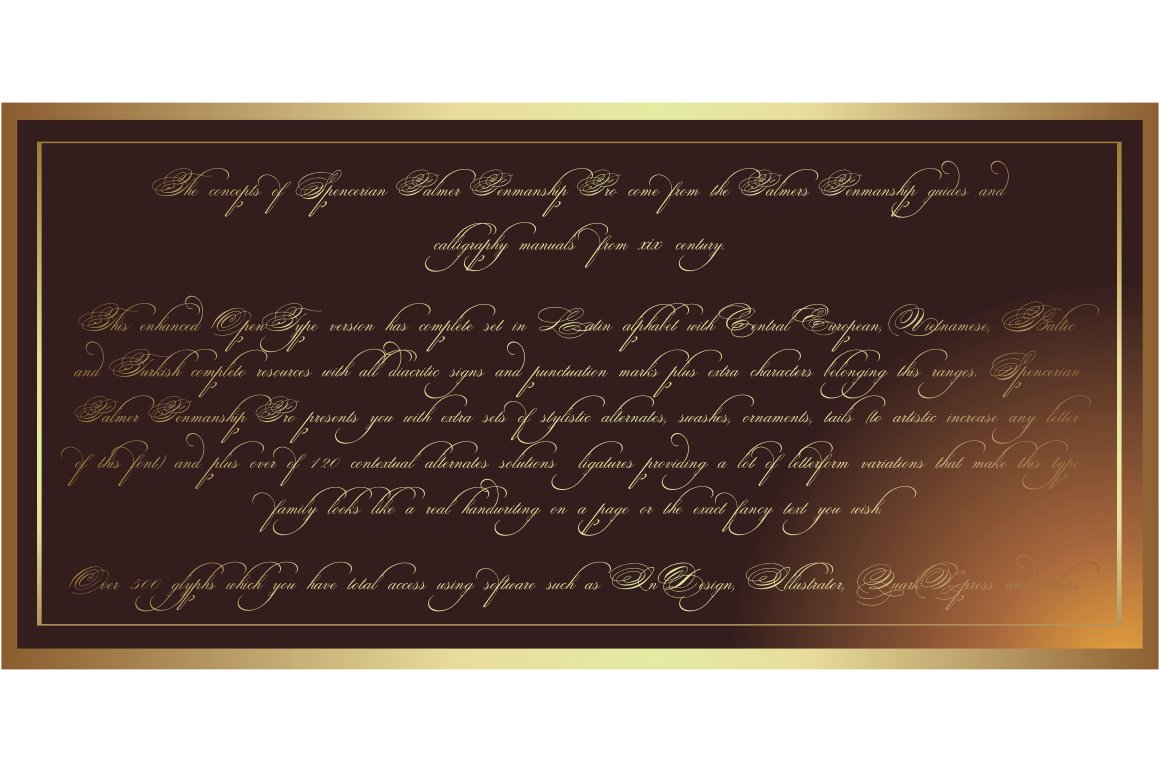 The concepts of Spencerian Palmer Penmanship Pro come from the Palmers Penmanship guides and
calligraphy manuals from xix century.
This enhanced OpenType version has complete set in Latin alphabet with Central European, Vietnamese, Baltic
and Turkish complete resources with all diacritic signs and punctuation marks plus extra characters belonging this ranges. Spencerian
Palmer Penmanship Pro presents you with extra sets of stylistic alternates, swashes, ornaments, tails (to artistic increase any letter
of this font) and plus over of 120 contextual alternates solutions ligatures providing a lot of letterform variations that make this type
family looks like a real handwriting on a page or the exact fancy text you wish.
Over 500 glyphs which you have total access using software such as InDesign, Illustrator, QuarkXpress and others.